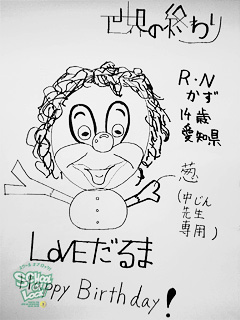 世界の終わり
R・N
かず
14歳
愛知県
葱
(中じん
先生
専用)
LOVEだるま
SCHOOL
OF
LOCK
Happy Birthday!